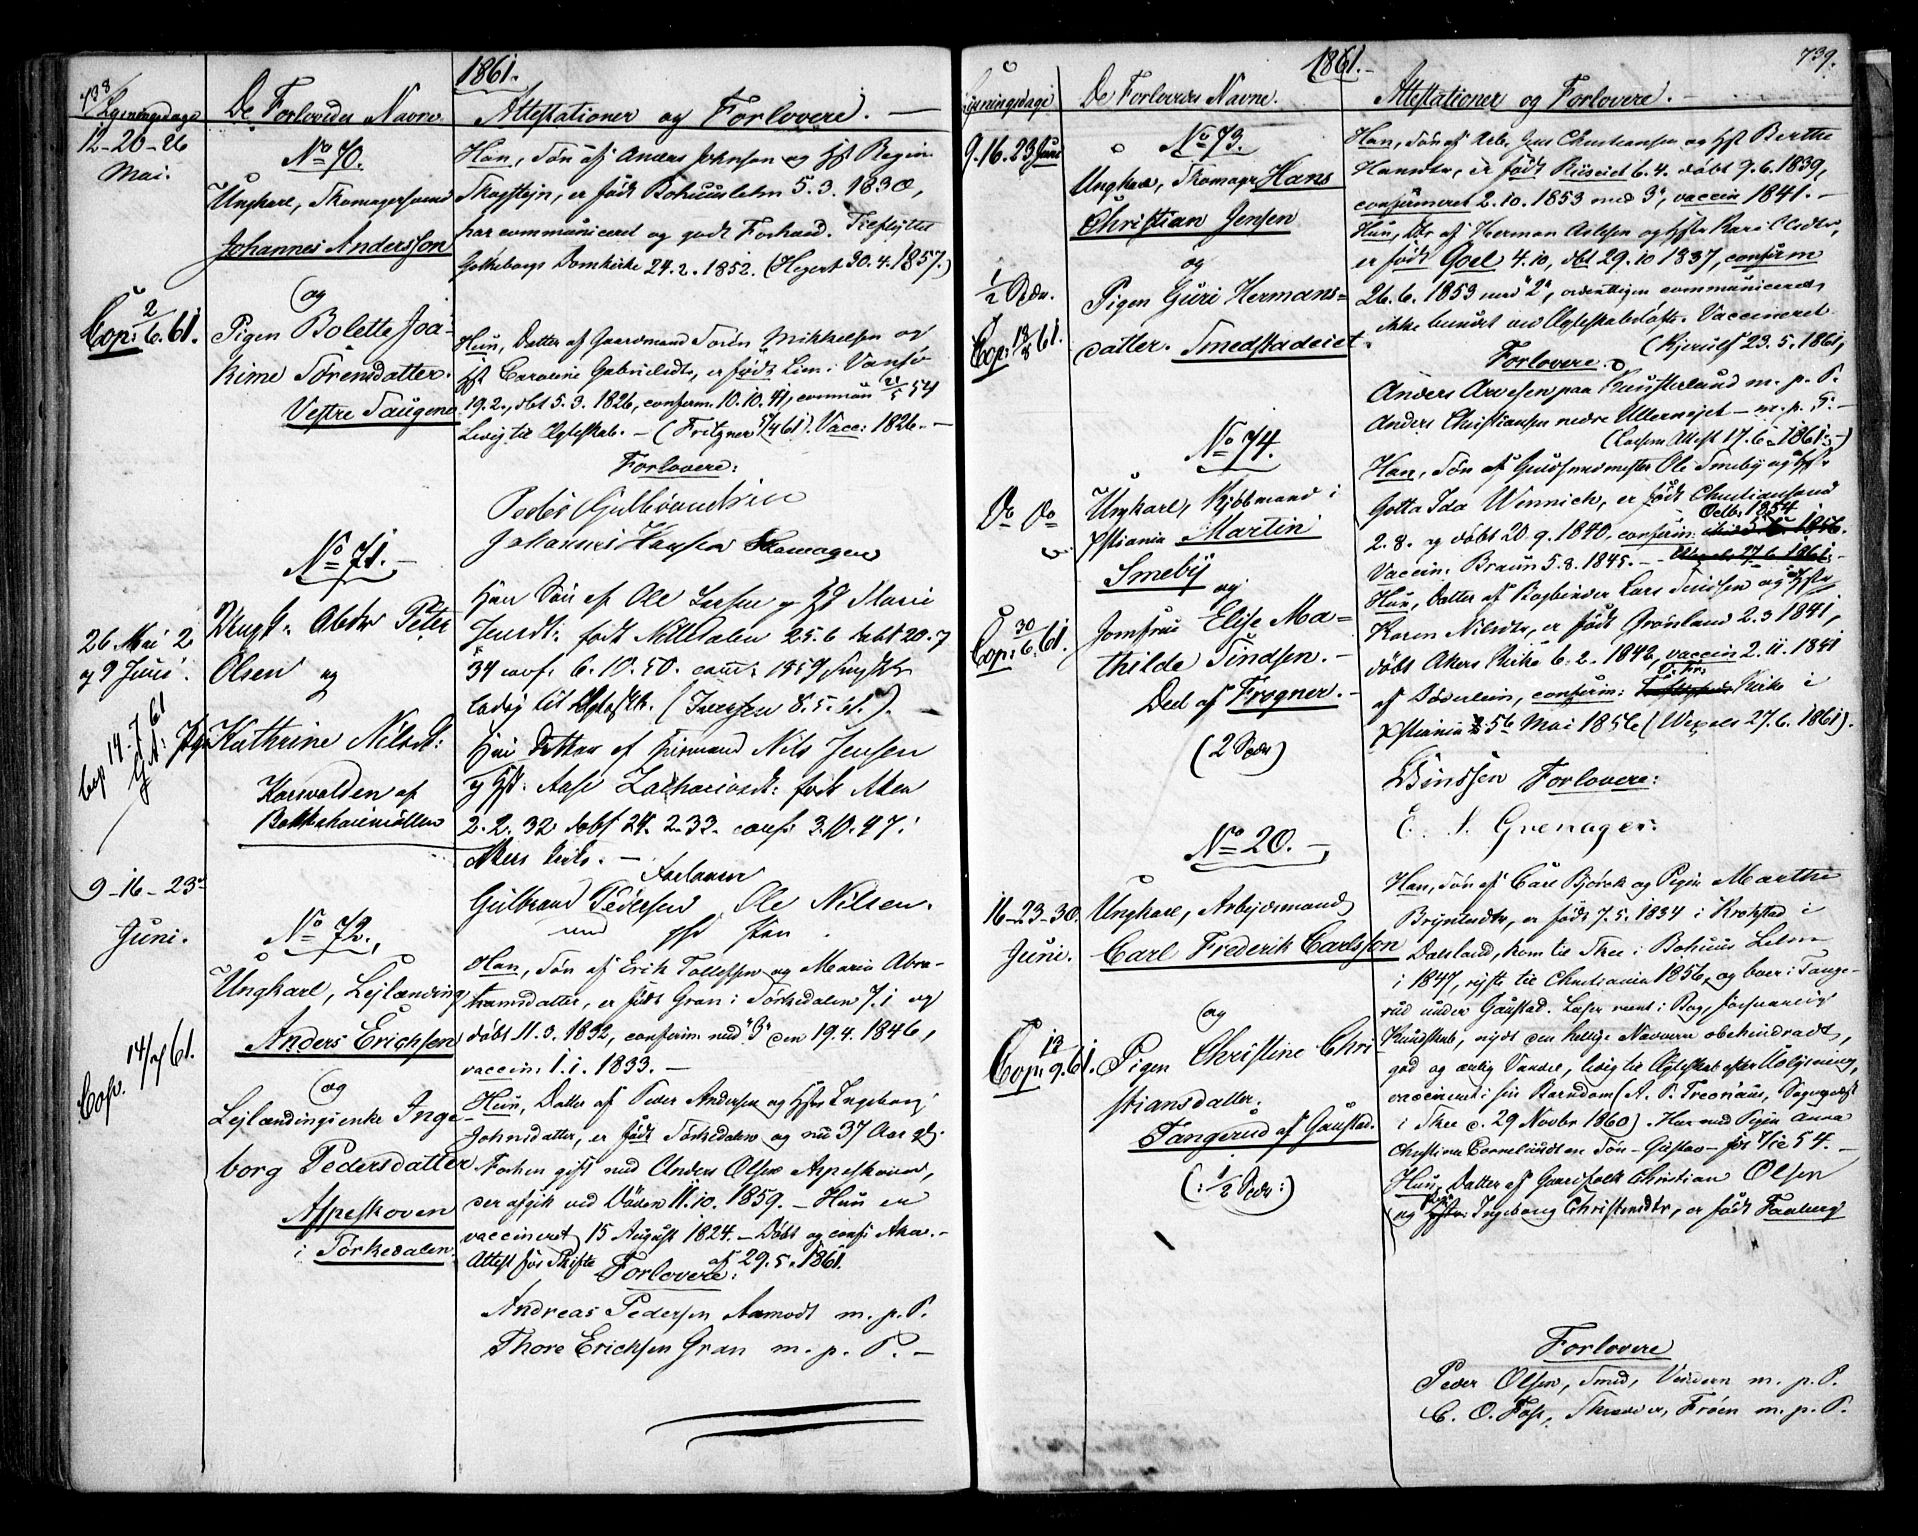 738
1861.
Lysningsdage
De Forlovedes Navne
Attestationer og Forlovere. —
12-20-26
Mai.
No 70.
Ungkarl, Skomagersvend
Johannes Andersson
og
Pigen Bolette Joa-
kime Sörensdatter.
Vestre Taugene
Cop: 2/6. 61.
Han, Sön af Anders Johnson og Hst Regin
Skogstejn, er födt Bohuuslehn 5.3.1830,
har communiceret og godt Forhold. Tilflyttet
Gotheborgs Domkirke 24.2.1852. (Hegert 30.4.1857.)
Hun, Datter af Gaardmand Sören Mikkelsen og
Hst Caroline Gabrielsdtr, er födt Lien i Vansö
19.2., döbt 5.3.1826, confirm. 10.10.41, commun 21/5 54
Ledig til Ægteskab. — (Fritzner 5/4 61). Vacc: 1826. —
Forlovere:
Peder Gulbrandsen
Johannes Hansen Skomager
No 71. —
26 Mai 2
og 9 Juni.
Cop 14-7-61
Ungk. Arbdr Peter
Olsen og
Pge Kathrine Nilsdt:
Korvolden af
Bakkehaugmöllen
Han Sön af Ole Larsen og Hst Marie
Jensdt: födt Nittedalen 25.6 döbt 20.7
34 conf. 6.10.50. com: 1859
ledig til Ægtesk. (Iversen 8.5.61).
Hun Datter af Huusmand Nils Jensen
og Hst: Aase Zachariasdt: födt Aker
2.2.32 döbt 24.2.33. conf: 3.10.47 i
Akers Kirke. —
Forlovere
Gulbrand Pedersen Ole Nilsen.
med
9-16-23
Juni.
No 72.
Ungkarl, Lejlænding
Anders Erichsen
og
Lejlændingienke Inge-
borg Pedersdatter
Aspeskoven
i Sörkedalen.
Cop. 14/7 61.
Han, Sön af Erik Tollefsen og Maria Abra-
hamsdatter, er födt Gran i Sörkedalen 7.1 og
döbt 11.3.1832, confirm. med "3" den 19.4.1846,
vaccin: 1.1.1833. —
Hun, Datter af Peder Andersen og Hst Ingeborg
Johnsdatter, er födt Sörkedalen og nu 37 Aar gl.
Forhen gift med Anders Olsen Aspeskoven,
der afgik ved Döden 11.10.1859. — Hun er
vaccineret 15 August 1824. — Döbt og conf. i Aker. —
Attest for Skifte af 29.5.1861.
Forlovere:
Andreas Pedersen Aamodt m. p. P.
Thore Erichsen Gran m. p. P. —
739.
1861. —
Lysningsdage
De Forlovedes Navne.
Attestationer og Forlovere. —
9.16.23 Juni
No 73.
Ungkarl, Skomager Hans
Christian Jensen
og
Pigen Guri Hermans-
datter. Smedstadeiet.
1/2 Spdr.
Cop: 13/8 61.
Han, Sön af Arb. Jens Christiansen og Hst Berthe
Hansdtr, er födt Riiseiet 6.4. döbt 9.6.1839,
confirmeret 2.10.1853 med 3, vaccin 1841. —
Hun, Dtr af Herman Aslesen og Hst Kari Olsdtr,
er födt Goel 4.10, dbt 29.10 1837, confirm
26.6.1853 med "2", ordentligen communiceret,
ikke bundet ved Ægteskabslöfte. Vaccineret
(Kjerulf 23.5.1861,
Forlovere.
Anders Arvesen paa Huusterlund m. p. P.
Anders Christiansen nedre Ullernejet — m. p. P. —
(Lassens Attest 17.6.1861. —)
No 74.
Do Do
Ungkarl, Kjöbmand i
Xstiania Martin
Smeby og
Jomfru Elise Ma-
thilde Tindsen. —
Deel af Frogner. —
(2 Spdr)
Cop: 30/6. 61.
Han, Sön af Guldsmedmester Ole Smeby og Hst
Gotta Ida Wennich, er födt Christiansand
2.8. og döbt 20.9.1840. confirm: Octbr 1854
Vaccin. Braun 5.8.1845. —
Hun, Datter af Bogbinder Lars Tindsen og Hst
Karen Nilsdtr, er födt Grönland 2.3 1841,
döbt Akers Kirke 6.2.1842. vaccin 2.11.1841
af Döderlein, confirm: Kirke i
Xstiania 5te Mai 1856 (Wexels 27.6.1861).
Forlovere:
E. N. Grenager.
No 20. —
16-23-30.
Juni.
Ungkarl, Arbejdsmand
Carl Frederik Carlsson
og
Pigen Christine Chri-
stiansdatter.
Tangerud af Gaustad.
(: 1/2 Spdr :)
Cop: 13/9. 61.
Han, Sön af Carl Björck og Pigen Marthe
Bryntesdtr, er födt 7.5.1834 i Krokstad i
Dalsland, kom til Skee i Bohuus Lehn
i 1847, rejste til Christiania 1856, og boer i Tange-
rud under Gaustad. Læser rent i Bog, forsvarlig
Kundskab, nydt den hellige Nadvere obehindradt,
god og ærlig Vandel, ledig til Ægteskab efter Udlysning,
vaccineret i sin Barndom (A. P.
i Skee d. 29 Novbr 1860). Har med Pigen Anna
Christine Corneliusdt en Sön — Gustav — för 54. —
Hun, Datter af Gaardfolk Christian Olsen
og Hst: Ingeborg Christensdtr, er födt Faaberg
Forlovere
Peder Olsen, Smed, Vindern m. p. P.
C. O. Foss, Skræder, Fröen m. p. P.